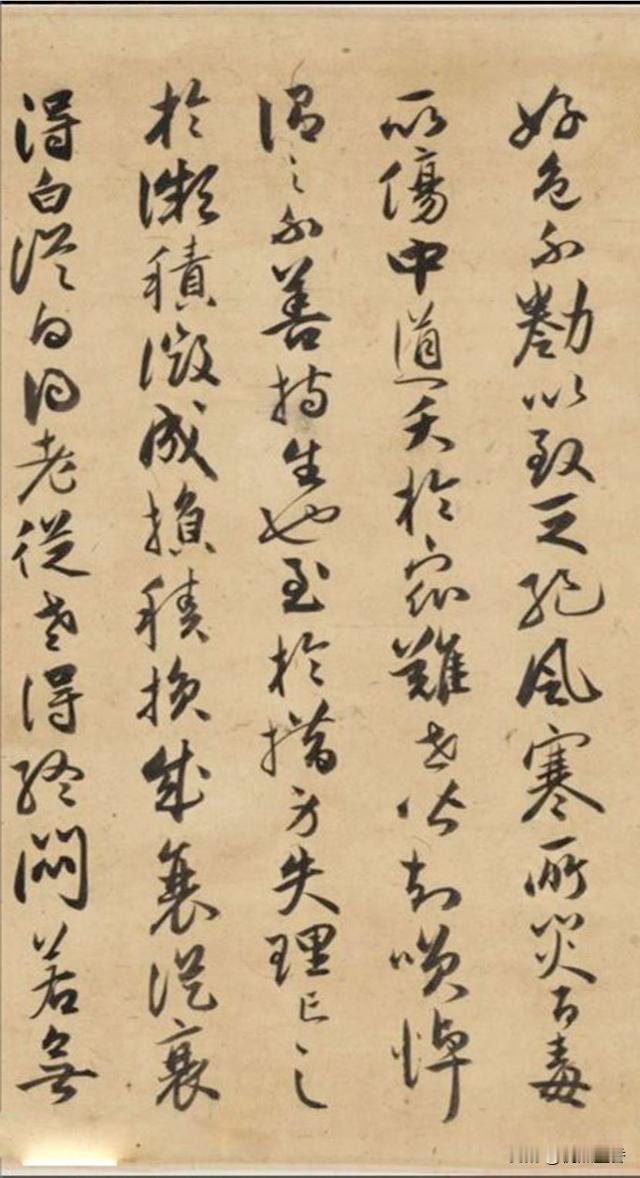 好色不勌以致乏絶風寒所災百毒
所傷中道夭於衆難世皆知咲悼
謂之不善持生也至於措身失理亡之
於微積微成損積損成衰從衰
得白從白得老從老得終悶若無